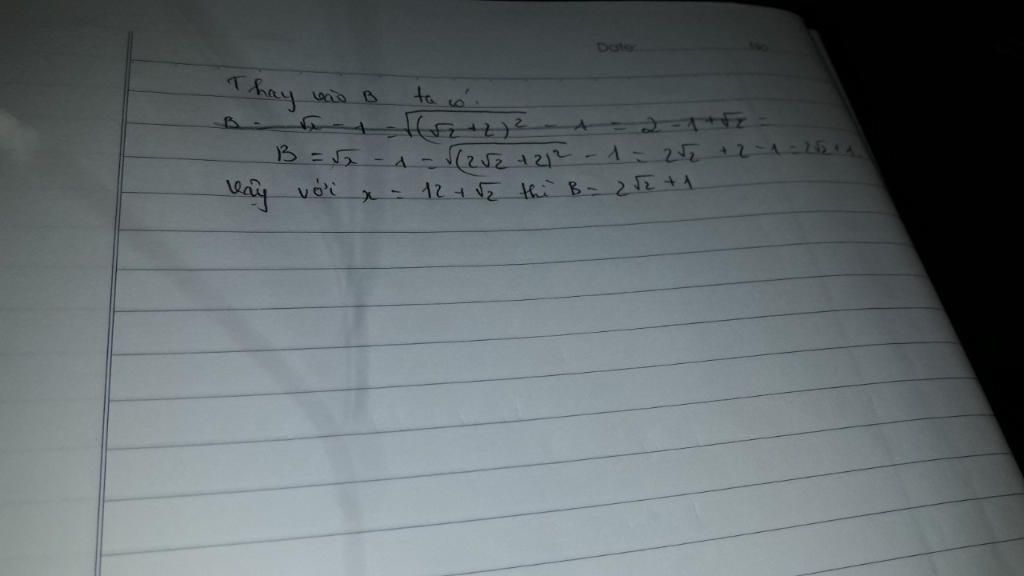 Date: No
Thay vào B ta có.
B = √x - 1 = √(√2 + 2)² - 1 = 2 - 1 + √2 =
B = √x - 1 = √(2√2 + 2)² - 1 = 2√2 + 2 - 1 = 2√2 + 1
Vậy với x = 12 + √2 thì B = 2√2 + 1